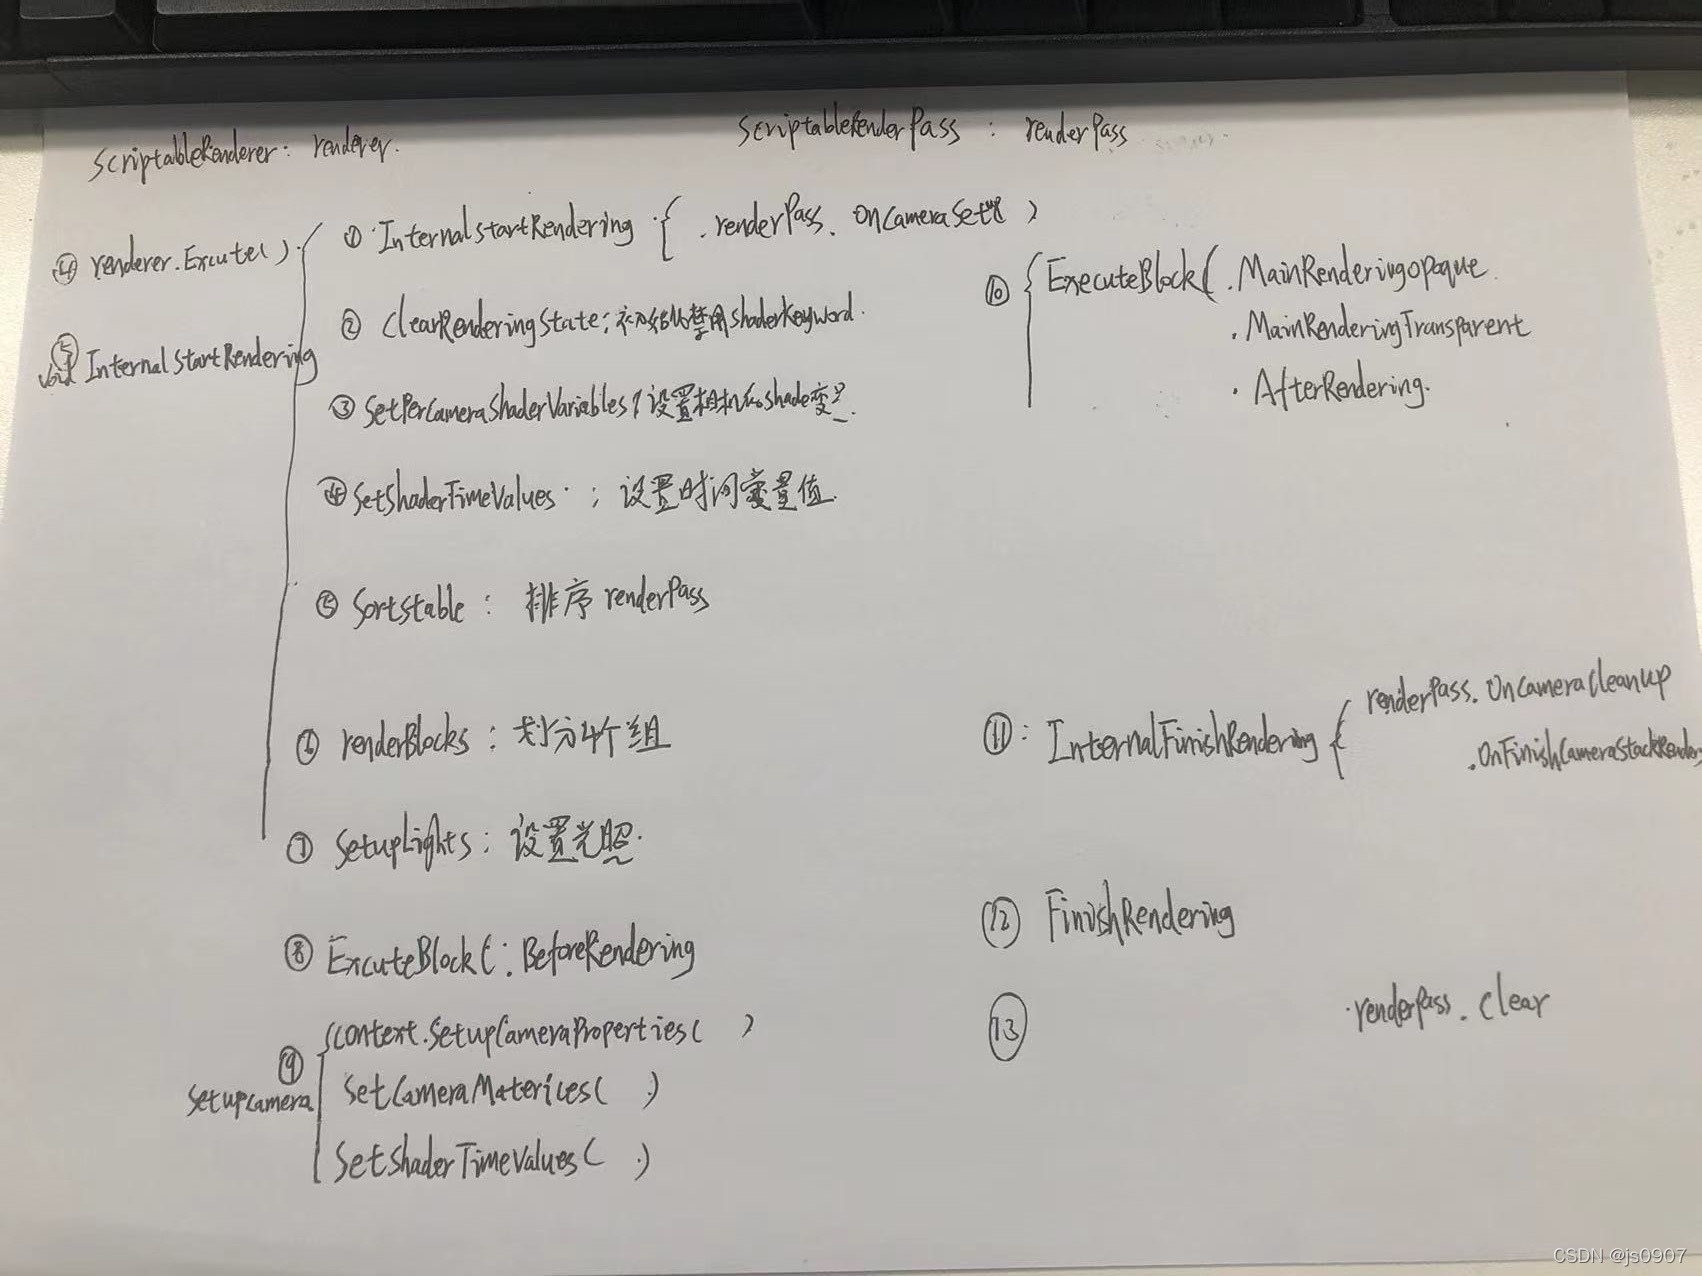 ScriptableRenderer: renderer.
ScriptableRenderPass : renderPass
④ renderer.Excute()
⑤ void InternalStartRendering
① InternalStartRendering { .renderPass. OnCameraSetup )
② ClearRenderingState: 初始化禁用shaderKeyword.
③ SetPerCameraShaderVariables: 设置相机的shade变量.
④ SetShaderTimeValues : 设置时间变量值.
⑤ Sortstable : 排序 renderPass
⑥ renderBlocks : 划分4个组
⑦ SetupLights : 设置光照.
⑧ ExcuteBlock( . BeforeRendering
⑨ SetupCamera
{ context.SetupCameraProperties( )
SetCameraMaterices( .)
SetShaderTimeValues( .)
⑩ { ExecuteBlock( .MainRenderingopaque.
.MainRenderingTransparent
. AfterRendering.
⑪ : InternalFinishRendering { renderPass. OnCameraCleanup
.OnFinishCameraStackRendering
⑫ FinishRendering
⑬ .renderPass. Clear
CSDN @js0907